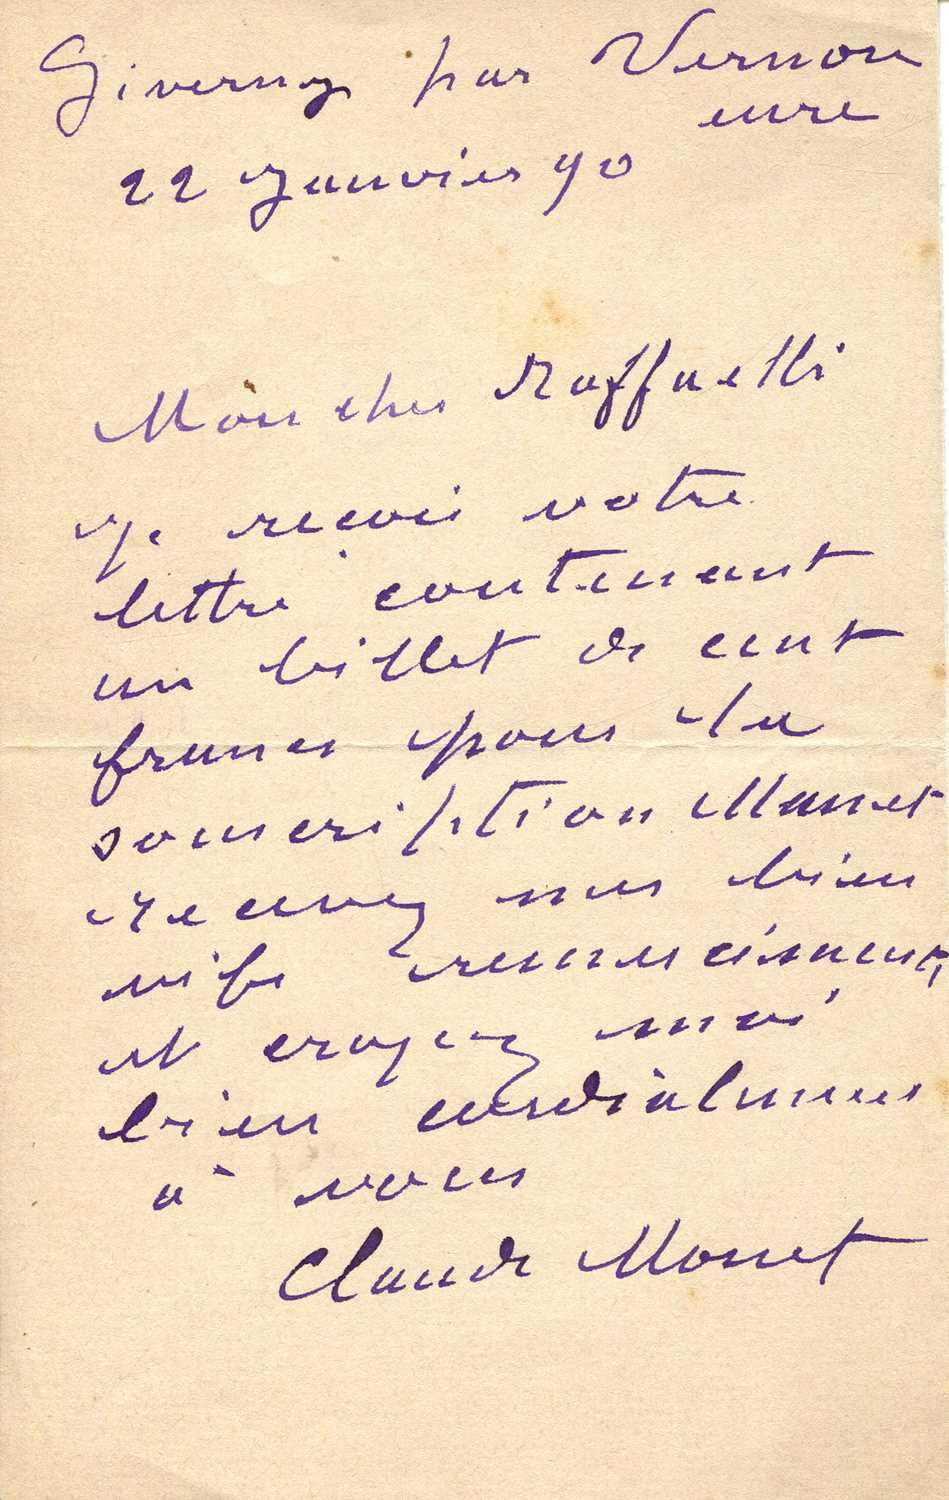 Giverny par Vernon
eure
22 Janvier 90
Mon cher Raffaelli
Je reçois votre
lettre contenant
un billet de cent
francs pour la
souscription Manet
recevez mes bien
vifs remerciements
et croyez moi
bien cordialement
à vous
Claude Monet